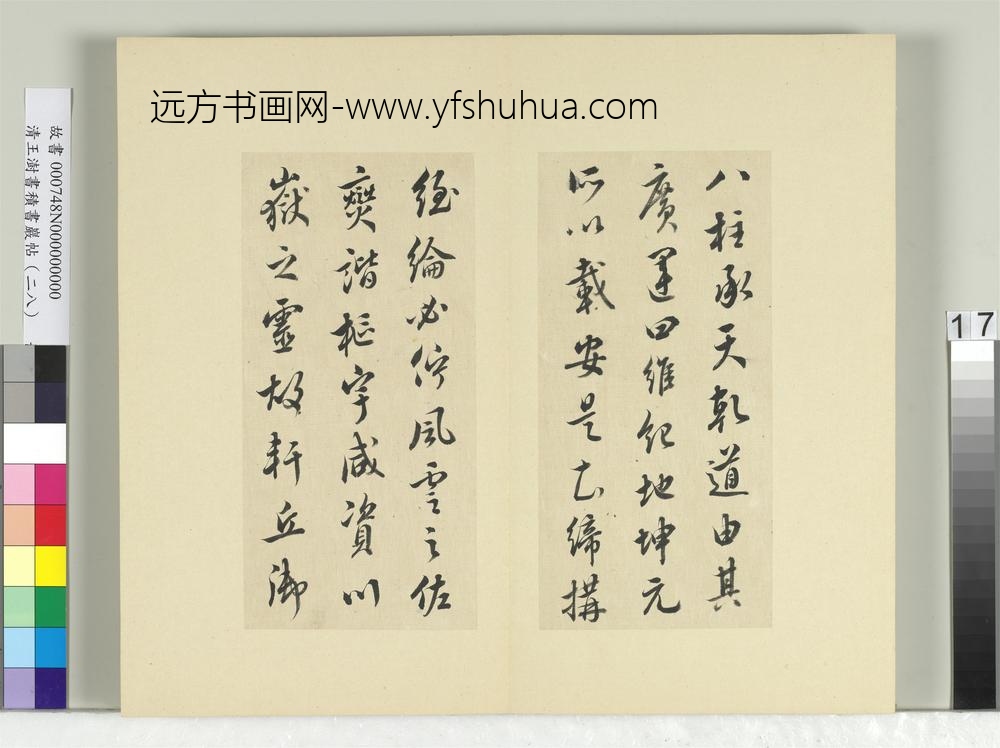 远方书画网-www.yfshuhua.com
八柱承天乾道由其
廣運四維紀地坤元
所以載安是知締構
經綸必佇風雲之佐
燮諧樞宇咸資川
嶽之靈故軒丘御
故書 000748N000000000
清王澍書積書巖帖（二八）
17